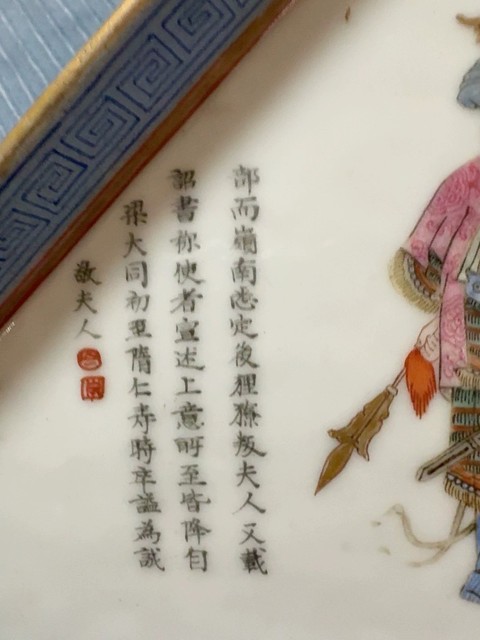 部而嶺南悉定後狸獠叛夫人又載
詔書称使者宣述上意所至皆降自
梁大同初至隋仁寿時卒謚為誠
敬夫人